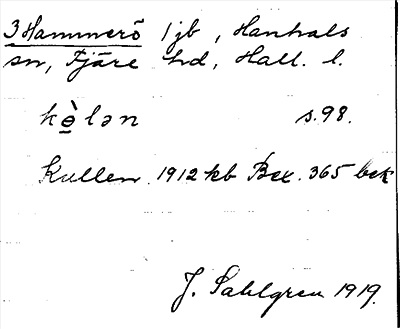 3 Hammerö 1 jb, Hanhals
sn, Fjäre hd, Hall. l.
kö̀lən s. 98.
Kullen 1912 kb Bex. 365 bck
J. Sahlgren 1919.